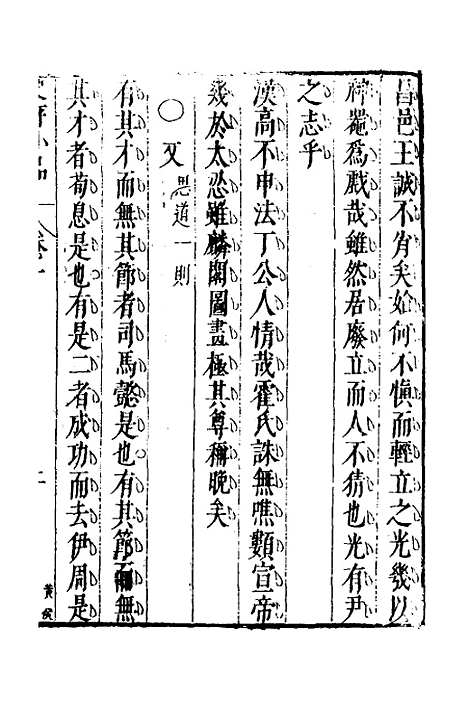 昌邑王誠不肖矣始何不慎而輕立之光幾以
神器爲戲哉雖然居廢立而人不猜也光有尹
之志乎
漢高不申法丁公人情哉霍氏誅無噍類宣帝
幾於太恐雖麟閣圖畫極其尊稱晚矣
○又思道一則
有其才而無其節者司馬懿是也有其節而無
其才者荀息是也有是二者成功而去伊周是
小品
卷一
二